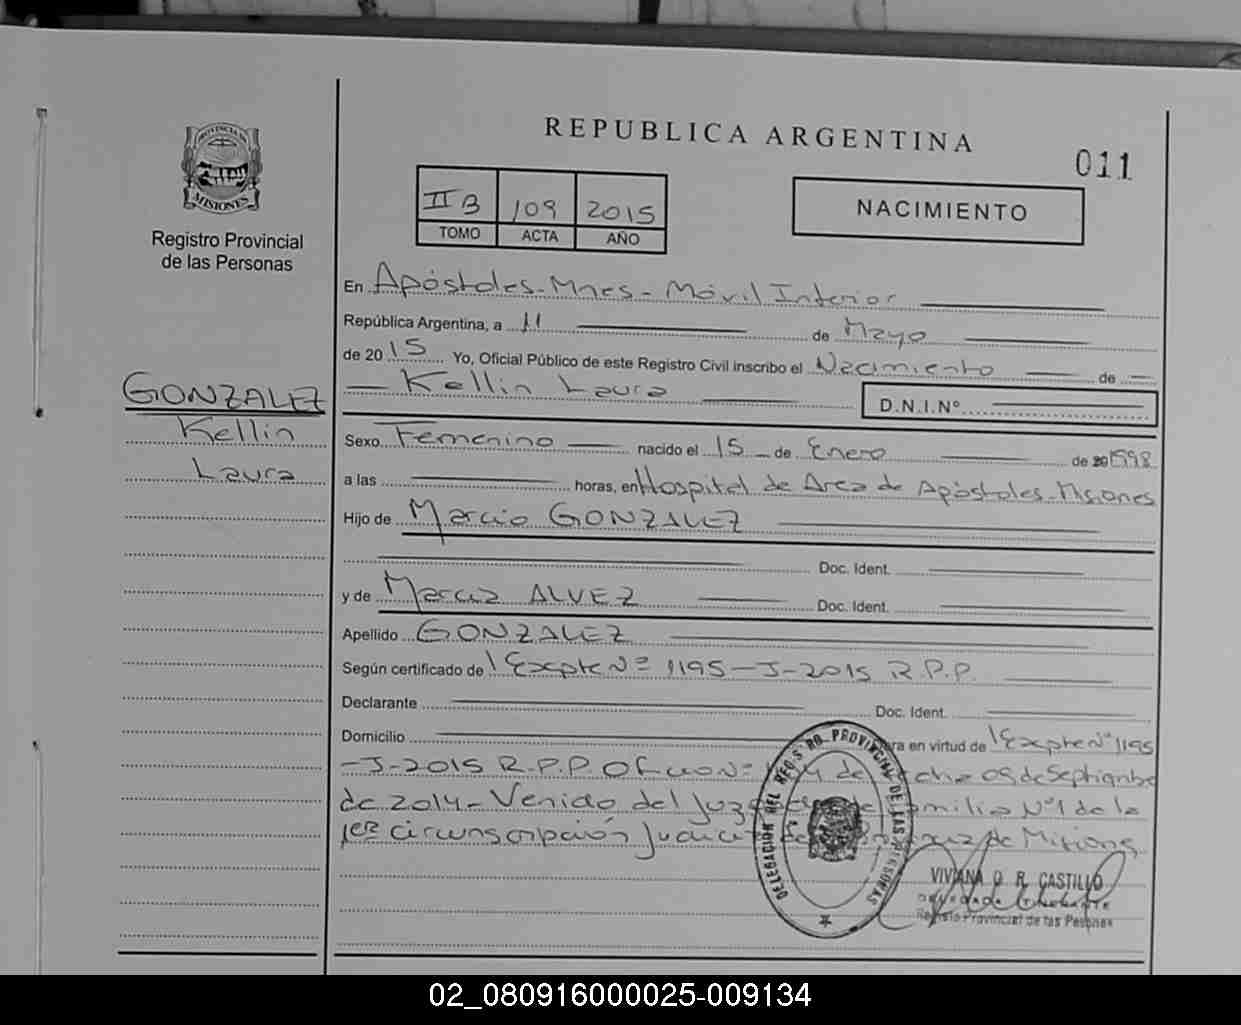 REPUBLICA ARGENTINA
011
PROVINCIA DE
MISIONES
Registro Provincial
de las Personas
II B 109 2015
TOMO ACTA AÑO
NACIMIENTO
En Apóstoles-Mnes-Móvil Interior
República Argentina, a 11 de Mayo
de 2015 Yo, Oficial Público de este Registro Civil inscribo el Nacimiento de
GONZALEZ
Kellin
Laura
Kellin Laura D.N.I.Nº
Sexo Femenino nacido el 15 de Enero de 1998
a las horas, en Hospital de Area de Apóstoles-Misiones
Hijo de Marcio GONZALEZ
Doc. Ident.
y de ALVEZ Doc. Ident.
Apellido GONZALEZ
Según certificado de Expte Nº 1195-J-2015 R.P.P.
Declarante Doc. Ident.
Domicilio en virtud de Expte Nº 1195
-J-2015 R.P.P. Oficio Nº de fecha 09 de Septiembre
de 2014- Venido del Juzgado de Familia Nº1 de la
1era circunscripción Judicial de Misiones
DELEGACION DEL REGISTRO PROVINCIAL DE LAS PERSONAS
VIVIANA O. R. CASTILLO
Registro Provincial de las Personas
02_080916000025-009134